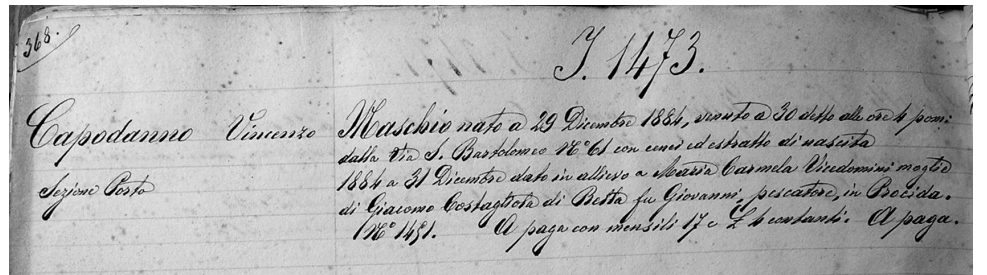 368.
I. 1473.
Capodanno Vincenzo Maschio nato a 29 Dicembre 1884, venuto a 30 detto alle ore 4 pom:
dalla via S. Bartolomeo N.º 61 con cenci ed estratto di nascita
Sezione Porto
1884 a 31 Dicembre dato in allievo a Maria Carmela Vicedomini moglie
di Giacomo Costagliola di Betta fu Giovanni, pescatore, in Procida.
(N.º 1491. A paga con mensili 17 e L 4 contanti. A paga.